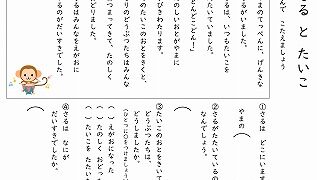 る と たいこ
んで こたえましょう
まのてっぺんに、げんきな
るがいました。
るは、いつもたいこを
たいていました。
どんどこどん！
のしいおとがやまに
びきわたります。
のたいこのおとをきくと、
りのどうぶつたちはみんな
つまってきて、たのしく
どりました。
るはみんなをえがおに
るのがだいすきでした。
①さるは どこにいます
やまの（
②さるがたたいているの
なんでしょう。
（
③たいこのおとをきいて
どうぶつたちは、
どうしましたか。
（ ）えがおになった
（ ）たのしく おどっ
（ ）たいこを たたい
④さるは なにが
だいすきでしたか。
（